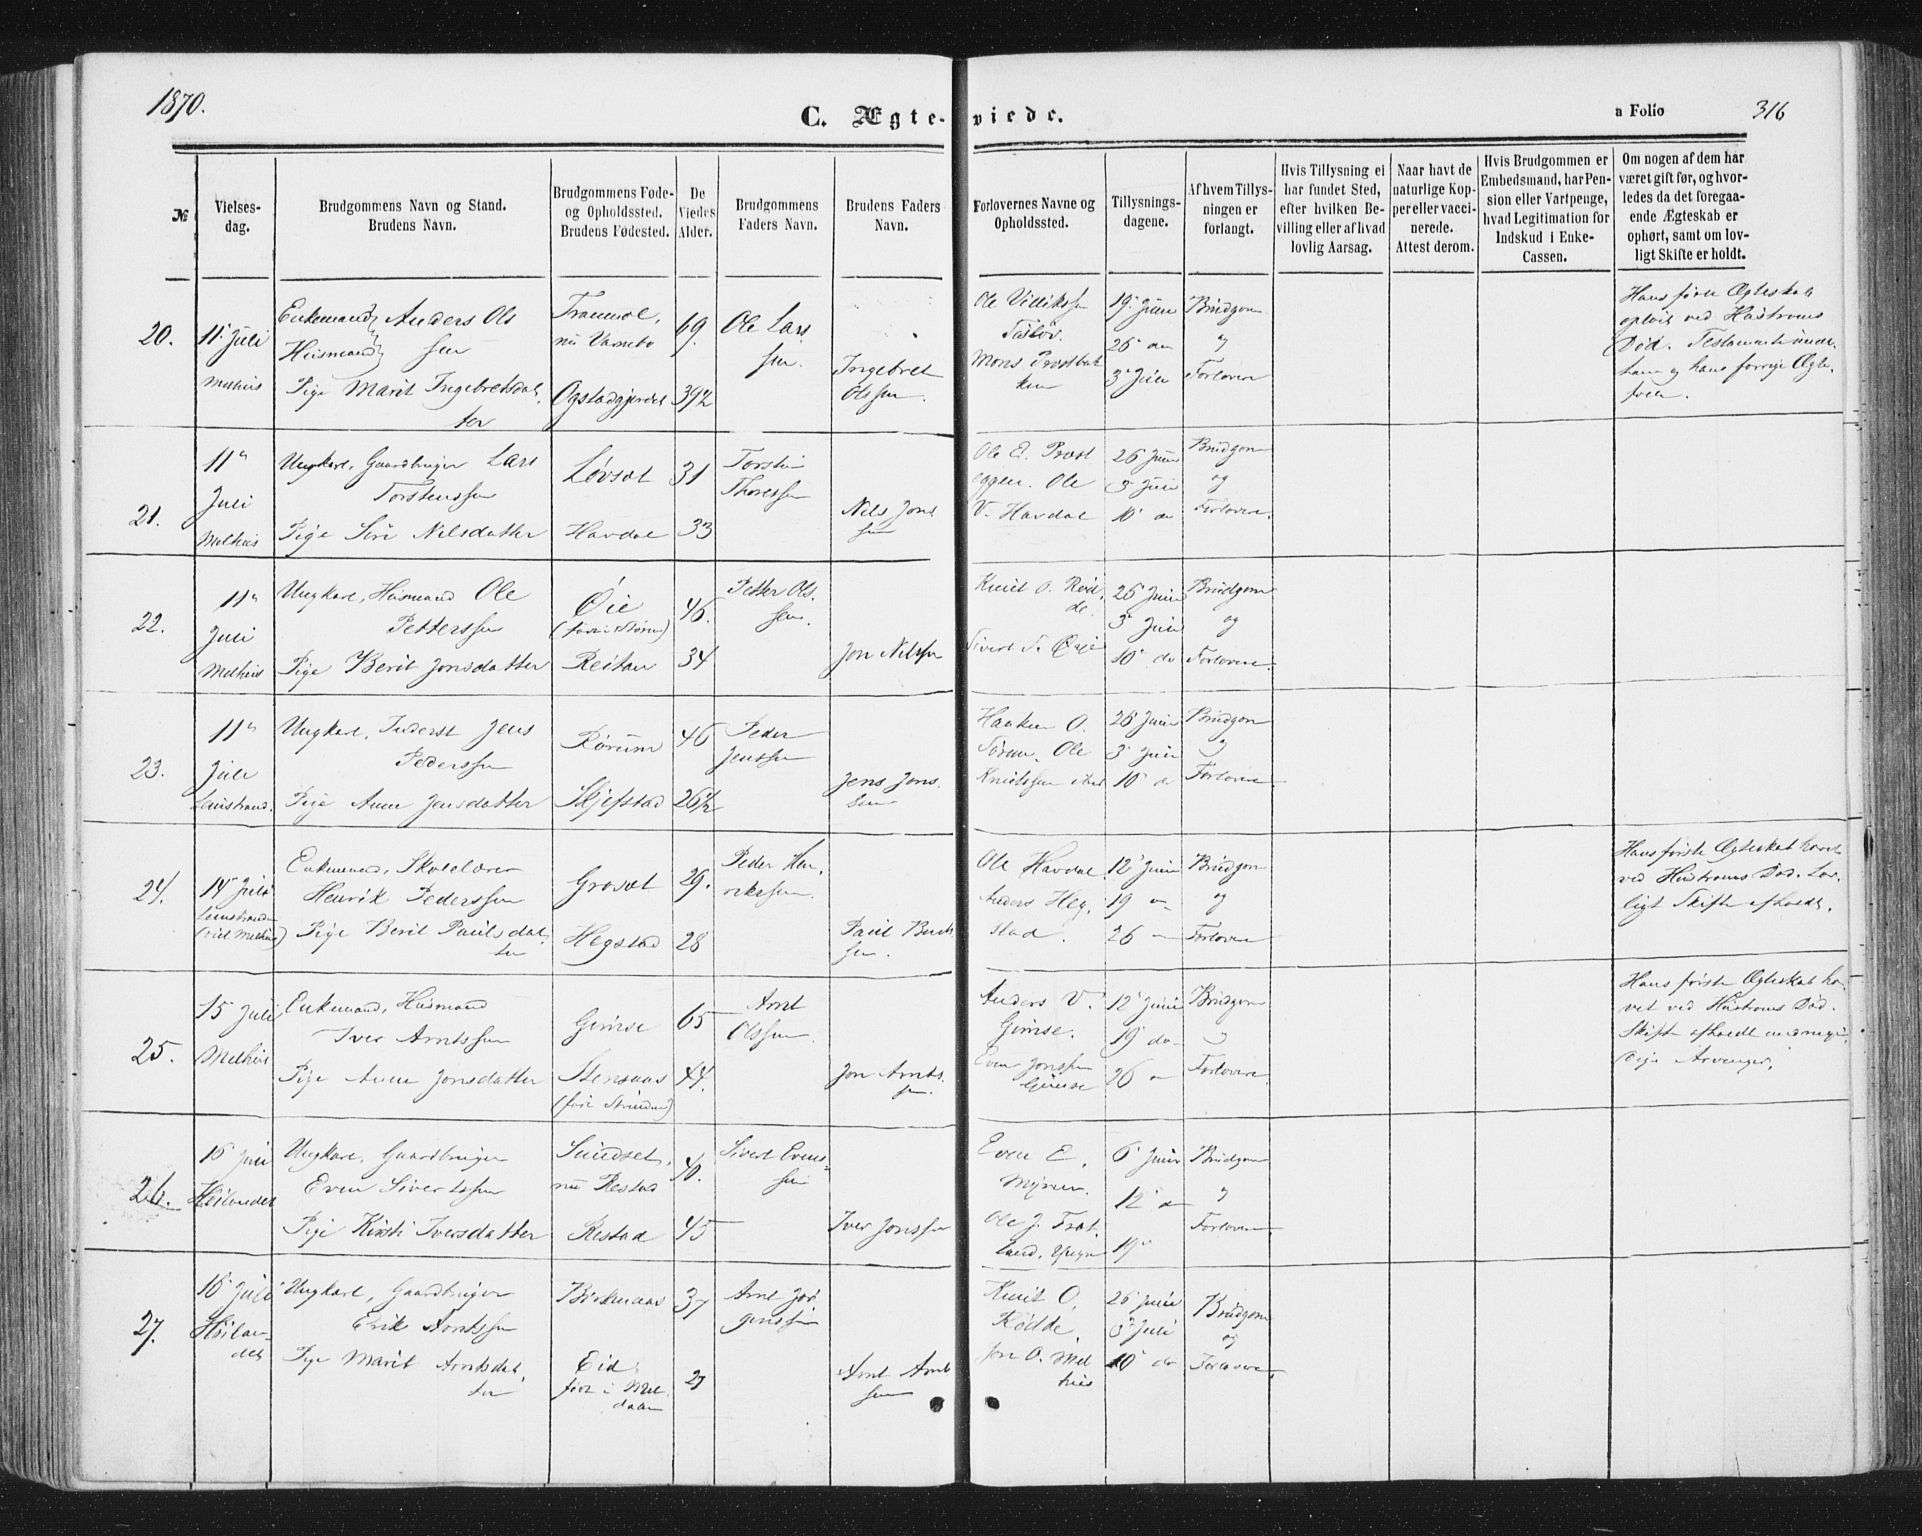 1870.
C. Ægte-viede.
a Folio 316
№
Vielses-dag.
Brudgommens Navn og Stand.
Brudens Navn.
Brudgommens Føde- og Opholdssted.
Brudens Fødested.
De Viedes Alder.
Brudgommens Faders Navn.
Brudens Faders Navn.
Forlovernes Navne og Opholdssted.
Tillysnings-dagene.
Af hvem Tillys-ningen er forlangt.
Hvis Tillysning ei har fundet Sted, efter hvilken Be-villing eller af hvad lovlig Aarsag.
Naar havt de naturlige Kop-per eller vacci-nerede. Attest derom.
Hvis Brudgommen er Embedsmand, har Pen-sion eller Vartpenge, hvad Legitimation for Indskud i Enke-Cassen.
Om nogen af dem har været gift før, og hvor-ledes da det foregaa-ende Ægteskab er ophørt, samt om lov-ligt Skifte er holdt.
20.
11 Juli
Melhus
Enkemand Husmand Anders Olssen
Pige Marit Ingebretsdatter
69
Ole Larssen.
Ingebret Olssen.
19 Juni
26 do
3 Juli
Brudgom og Forlovere
21.
11 Juli
Melhus
Ungkarl, Gaardbruger Lars Torstenssen
Pige Siri Nilsdatter
Løvset
Havdal
31
33
Nils Jonssen
Ole V. Havdal
26 Juni
3 Juli
10 do
Brudgom og Forlovere.
22.
11 Juli
Melhus
Ungkarl, Husmand Ole Petterssen
Pige Berit Jonsdatter
Øie
Reitan
46.
34
Petter Olssen.
Jon Nilssen
Sivert
26 Juni
3 Juli
10 do
Brudgom og Forlovere.
23.
11 Juli
Leinstrand.
Ungkarl, Inderst Jens Pederssen
Pige Anne Jensdatter
Rørum
Skjefstad
46
26 1/2
Peder Jenssen
Jens Jonssen
26 Juni
3 Juli
10 do
Brudgom og Forlovere
24.
14 Juli
Leinstranden
Enkemand, Skolelærer Henrik Pederssen
Pige Berit Paulsdatter
Grosæt
Hegstad
29.
28
Peder Henrikssen
Ole Havdal.
Anders Hegstad.
12 Juni
19 —
26 —
Brudgom og Forlovere
Hans første Ægteskab hævet ved Hustruens Død. Lovligt Skifte afholdt.
25.
15 Juli
Melhus
Enkemand, Husmand Iver Arntssen
Pige Anne Jonsdatter
Gimse
Stensaas
65
44.
Arnt Olssen.
Jon Arntssen.
Anders V. Gimse.
Even Jonssen Gimse
12 Juni
19 do
26 —
Brudgom og Forlovere.
Hans første Ægteskab hævet ved Hustruens Død.
Skifte afholdt med myndige Arvinger.
26.
Høilandet
Ungkarl, Gaardbruger Even Sivertssen
Pige Kirsti Iversdatter
Sundset, nu Restad
Restad
40.
45
Sivert Evenssen
Iver Jonssen
Even E.
6 Juni
12 do
19
Brudgom og Forlovere.
27.
16 Juli
Høilandet
Ungkarl, Gaardbruger Erik Arntssen
Pige Marit Arntsdatter
Eid
født i Meldalen
37
Arnt Jørgenssen
Arnt Arntssen
Knut O. Rødde.
Jon O. Melhus
26 Juni
3 Juli
10 do
Brudgom og Forlovere.